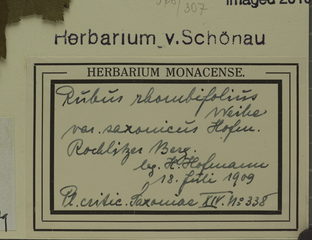 307
Imaged 201
Herbarium v. Schönau
HERBARIUM MONACENSE.
Rubus rhombifolius
Weihe
var. saxonicus Hofm.
Rochlitzer Berg.
lg. H. Hofmann
18. Juli 1909
Pl. critic. Saxoniae XIV. No 338